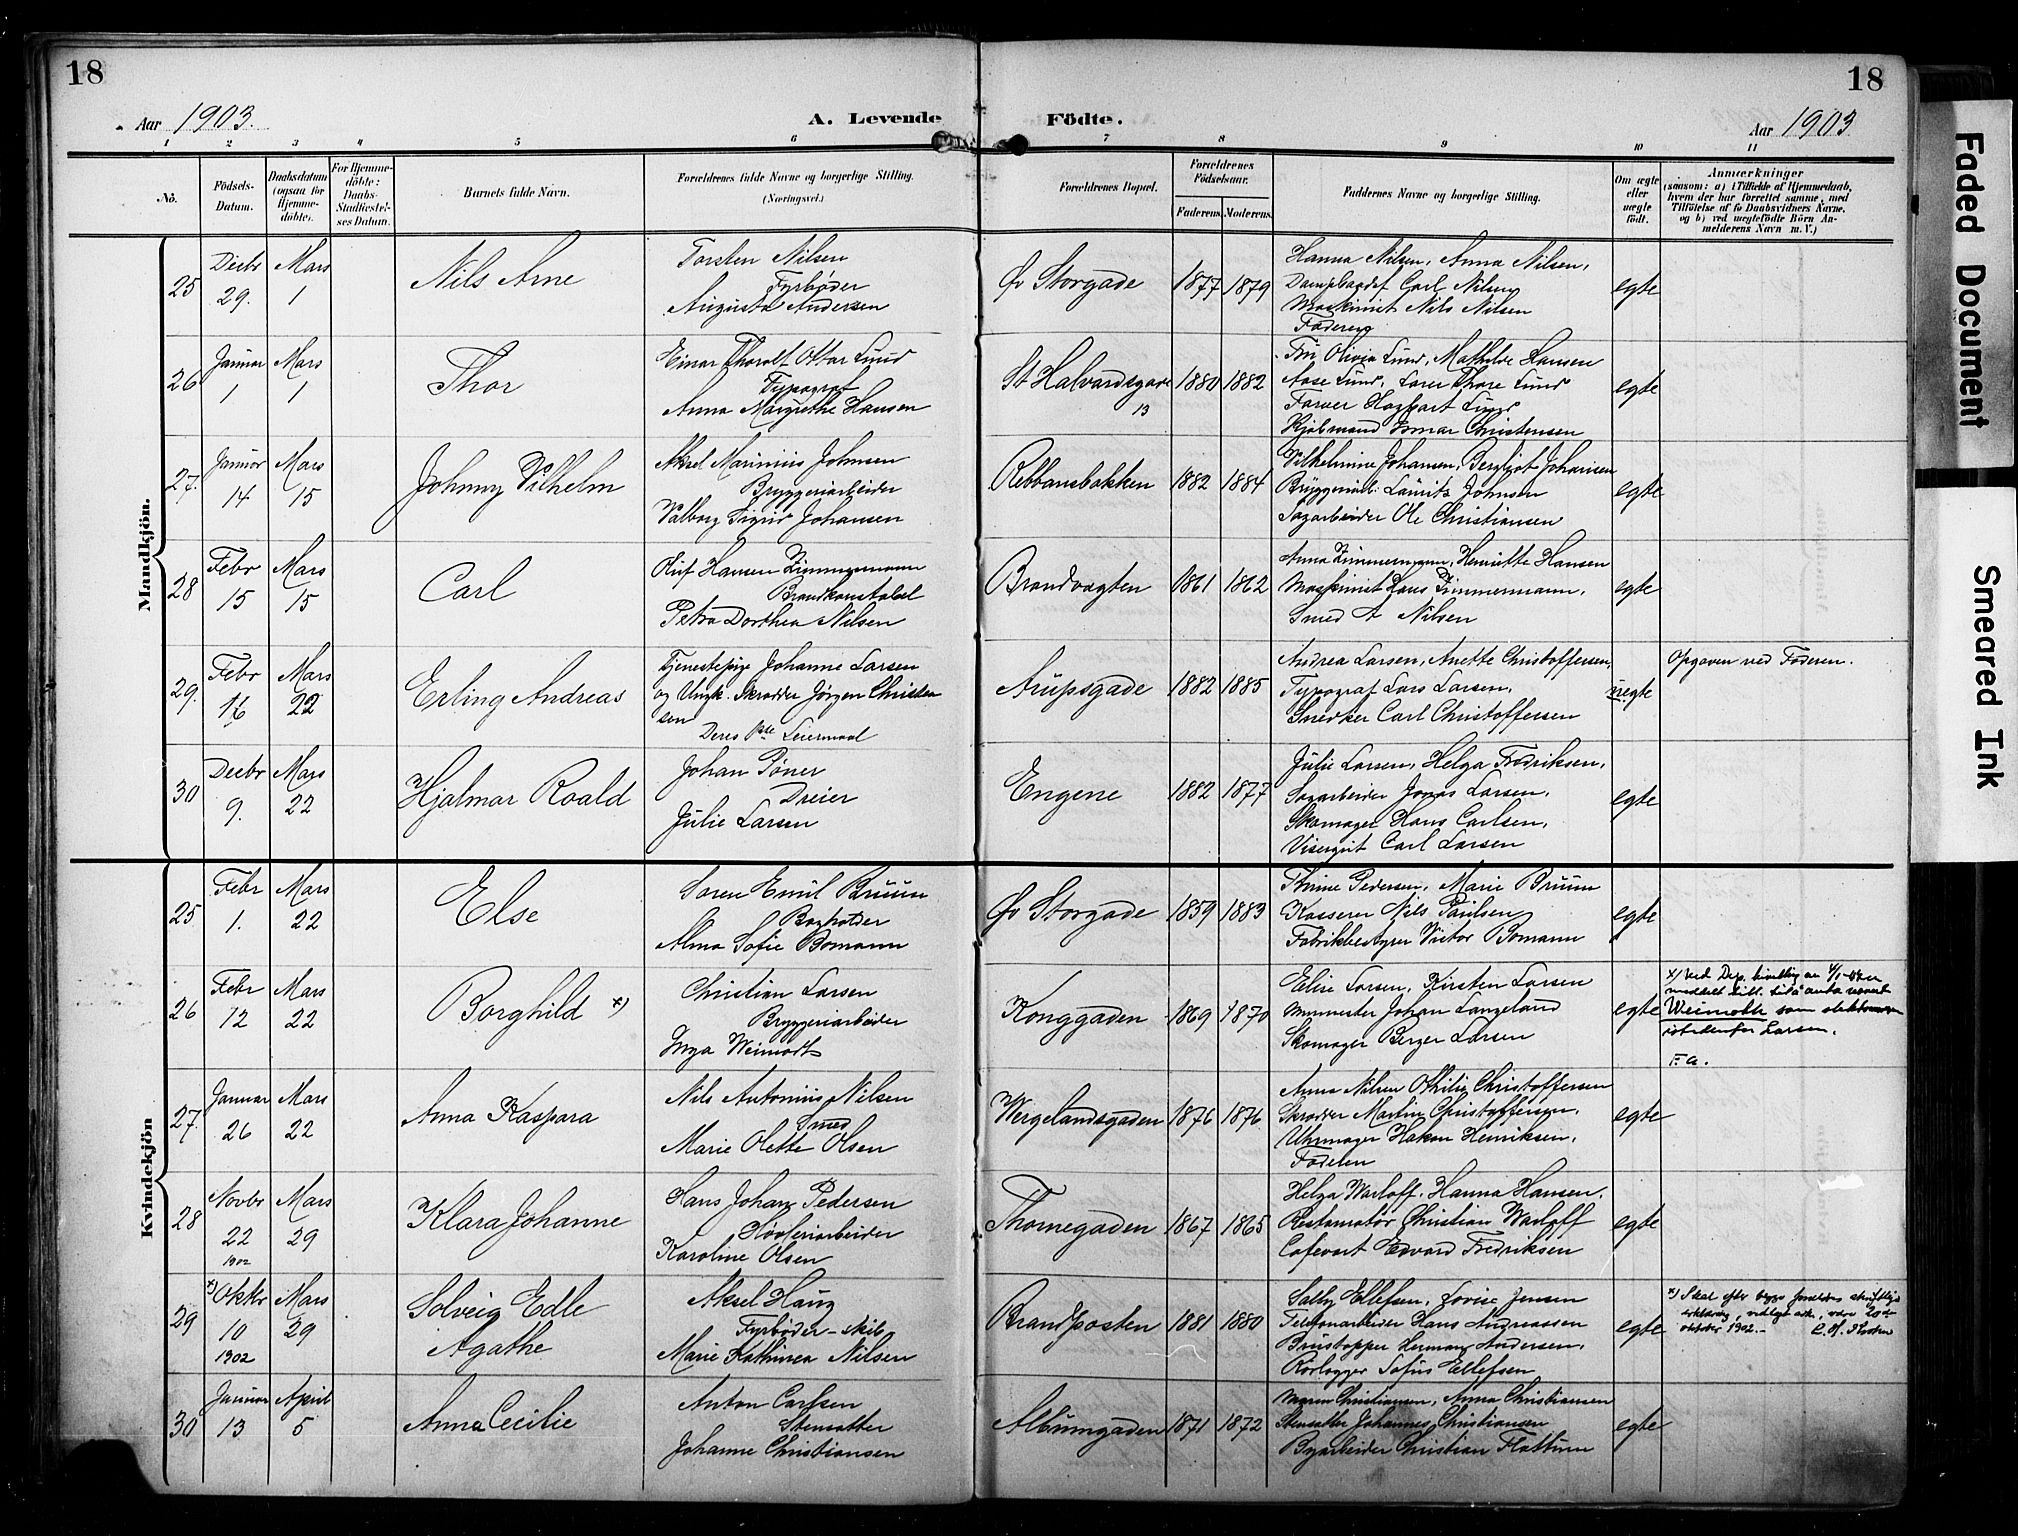 18
18
Aar 1903.
A. Levende Födte.
Aar 1903
1 2 3 4 5 6 7 8 9 10 11
No.
Födsels-Datum.
Daabsdatum (ogsaa for Hjemmedöbte).
For Hjemmedöbte: Daabs-Stadfæstelses Datum.
Barnets fulde Navn.
Forældrenes fulde Navne og borgerlige Stilling. (Næringsvei.)
Forældrenes Bopæl.
Forældrenes Födselsaar.
Faderens Moderens
Faddernes Navne og borgerlige Stilling.
Om ægte eller uægte födt.
Anmærkninger
(saasom: a) i Tilfælde af Hjemmedaab, hvem der har forrettet samme, med Tilföielse af to Daabsvidners Navne, og b) ved uægtefödte Börn Anmelderens Navn m. V.)
Mandkjön.
25 Decbr 29. Mars 1
Nils Arne
Torsten Nilsen
Fyrbøder
Augusta Andersen
Øv Storgade 1877 1879
Hanna Nilsen, Anna Nilsen,
Carl Nilsen
Maskinist Nils Nilsen
Faderen
egte
26 Januar 1 Mars 1
Thor
Einar Thoralf Ottar Lund
Typograf
Anna Margrethe Hansen
St Halvardsgade 13 1880 1882
Fru Olivia Lund, Mathilde Hansen
Aase Lund, Thore Lund
Farver Hagbart Lund
Christensen
egte
27. Januar 14 Mars 15
Johnny Vilhelm
Aksel Marinius Johnsen
Bryggeriarbeider
Valborg Sigrid Johansen
Rebbansbakken 1882 1884
Vilhelmine Johansen, Bergljot Johansen
Lauritz Johnsen
Sagarbeider Ole Christiansen
egte
28 Febr 15 Mars 15
Carl
Oluf Hansen Zimmermann
Brandkonstabel
Petra Dorthea Nilsen
Brandvagten 1861 1862
Anna Zimmermann, Henriette Hansen
Maskinist Hans Zimmermann,
Smed A Nilsen
egte
29. Febr 16 Mars 22
Erling Andreas
Tjenestepige Johanne Larsen
og Ungk. Skrædder Jørgen Christensen
Deres 1ste Leiermaal
Arupsgade 1882 1885
Andrea Larsen, Anette Christoffersen,
Typograf Lars Larsen,
Snedker Carl Christoffersen
uegte
Opgaven ved Faderen.
30 Decbr 9. Mars 22
Hjalmar Roald
Johan
Dreier
Julie Larsen
Engene 1882 1877
Julie Larsen, Helga Fredriksen,
Sagarbeider Jonas Larsen,
Skomager Hans Carlsen,
Visergut Carl Larsen
egte
Kvindekjön
25 Febr 1. Mars 22
Else
Søren Emil Bruun
Bogholder
Alma Sofie Bomann
Øv Storgade 1859 1883
Thrine Pedersen, Marie Bruun
Kasserer Nils Paulsen
Fabrikbestyrer Victor Bomann
egte
26 Febr 12 Mars 22
Borghild x)
Christian Larsen
Bryggeriarbeider
Inga Weimodt
Konggaden 1869 1870
Elise Larsen, Kirsten Larsen
Murmester Johan Langeland
Skomager Berger Larsen
egte
x) Ved Dep. bevilling av
meddelt till. til å anta navnet
Weimoth som slektsnavn
istedenfor Larsen.
27. Januar 26 Mars 22
Anna Kaspara
Nils Antonius Nilsen
Smed
Marie Olette Olsen
Wergelandsgaden 1876 1876
Anna Nilsen Othilie Christoffersen
Skrædder Martin Christoffersen,
Uhrmager Hakon Henriksen,
Faderen
egte
28 Novbr 22 1902 Mars 29
Klara Johanne
Hans Johan Pedersen
Høvleriarbeider
Karoline Olsen
Thornegaden 1867 1865
Helga Warloff, Hanna Hansen,
Restauratør Christian Warloff
Cafevært Edvard Fredriksen
egte
29 x) Oktbr 10 1902 Mars 29
Solveig Edle
Agathe
Aksel Haug
Fyrbøder - skib
Marie Kathinea Nilsen
Brandposten 1881 1880
Salby Ellefsen, Lovise Jensen
Telefonarbeider Hans Andreassen
Herman Andersen,
Rørlægger Sofus Ellefsen
egte
x) Skal efter begge forældres skriftlige
erklæring, vedlagt att., være 20de
oktober 1902.-
30 Januar 13 April 5
Anna Cecilie
Anton Carlsen
Stensætter
Johanne Christiansen
Albumgaden 1871 1872
Maren Christiansen, Anna Christiansen
Stensætter Johannes Christiansen
Byarbeider Christian Flattum
egte
Faded Document
Smeared Ink